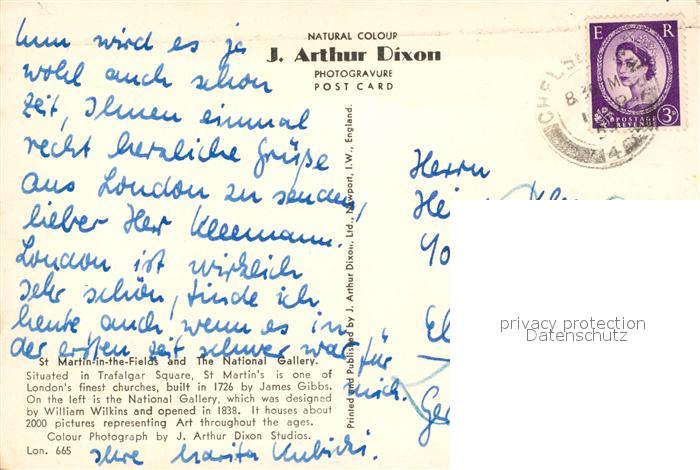 Nun wird es ja
wohl auch schon
Zeit, Ihnen einmal
recht herzliche Grüße
aus London zu senden,
lieber Herr Kleemann.
London ist wirklich
sehr schön, finde ich
heute, auch wenn es in
der ersten Zeit schwer war für
mich.
Ihre Marita
NATURAL COLOUR
J. Arthur Dixon
PHOTOGRAVURE
POST CARD
Printed and Published by J. Arthur Dixon, Ltd., Newport, I.W., England.
E R
POSTAGE
REVENUE
3D
CHELSE
Herrn
privacy protection
Datenschutz
St Martin-in-the-Fields and The National Gallery.
Situated in Trafalgar Square, St Martin's is one of
London's finest churches, built in 1726 by James Gibbs.
On the left is the National Gallery, which was designed
by William Wilkins and opened in 1838. It houses about
2000 pictures representing Art throughout the ages.
Colour Photograph by J. Arthur Dixon Studios.
Lon. 665